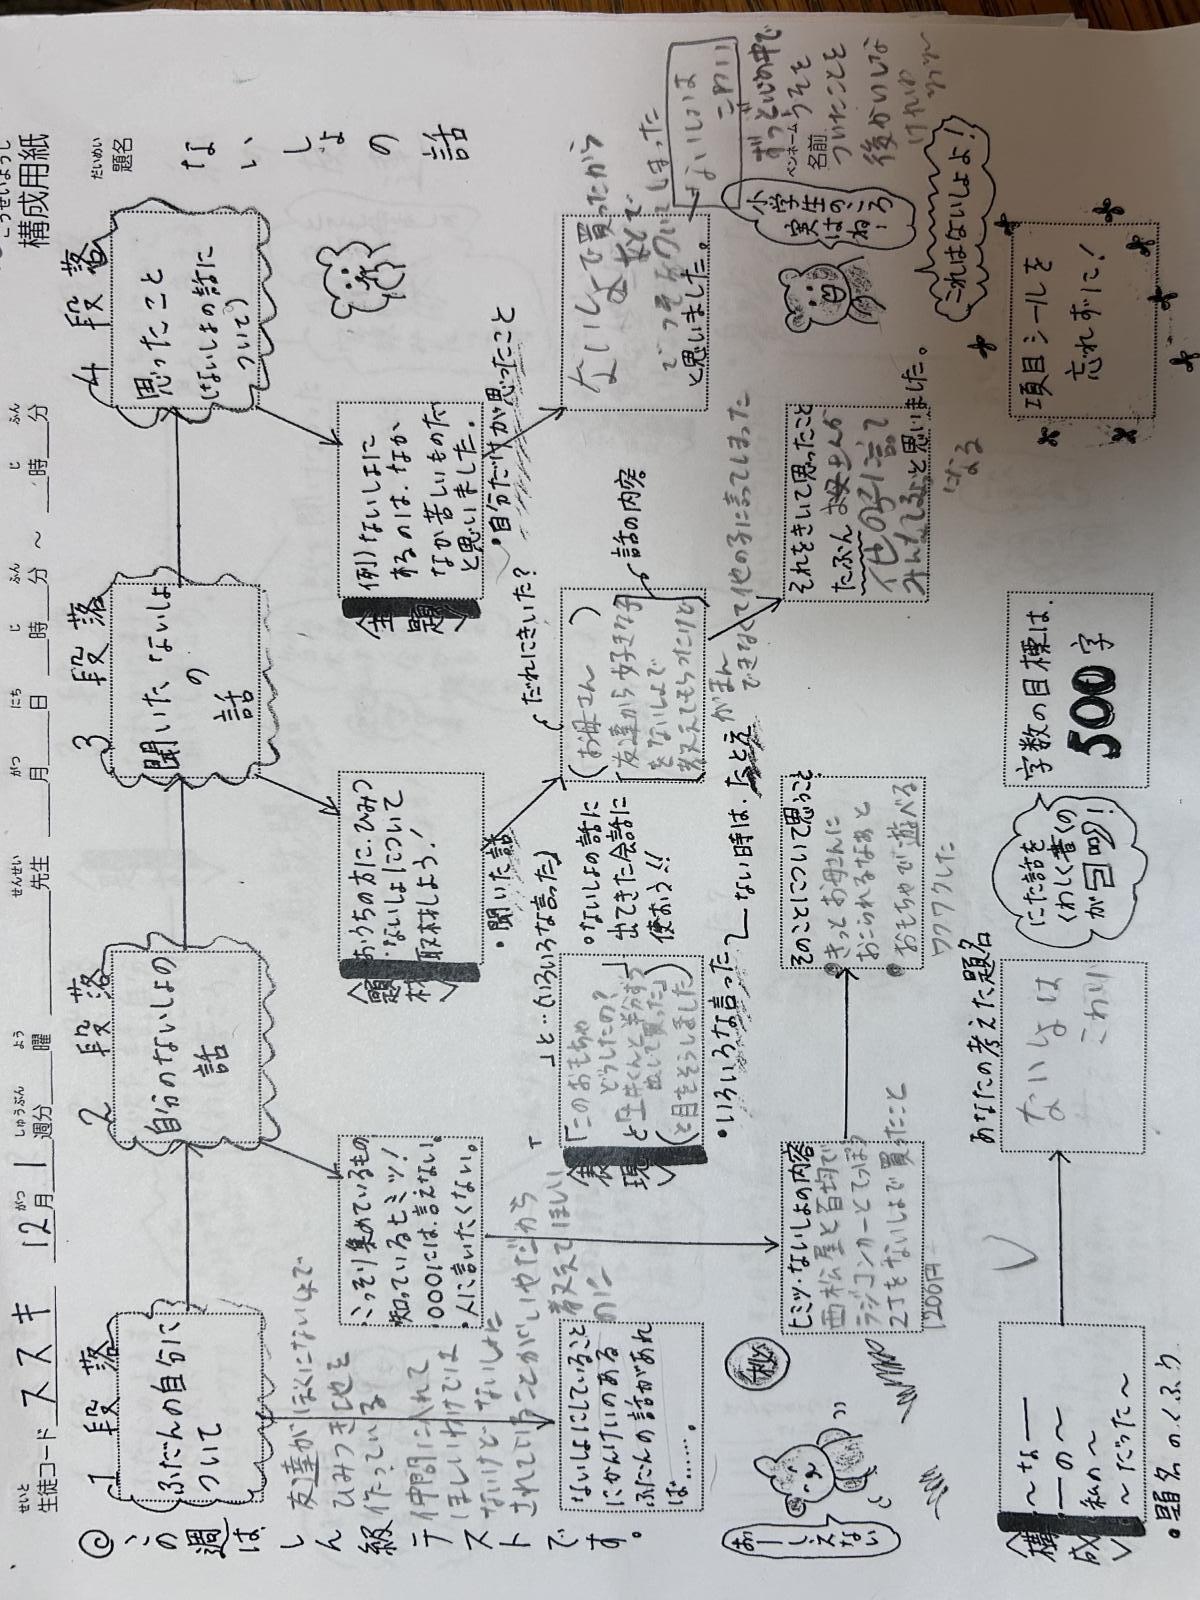 こうせいようし
構成用紙
せいと
生徒コード ススキ
がつ しゅうぶん よう
12月1週分 曜
せんせい
先生
がつ にち じ ふん じ ふん
月 日 時 分 ～ 時 分
だいめい
題名
ないしょの話
ペンネーム
名前
◎この週はしん級テストです。
1段落
ふだんの自分に
ついて
友達がぼくにないしょで
ひみつきちを
作っている
仲間に入れて
ほしいわけでは
ないけどないしょに
されていることがいやだから
教えてほしい
ないしょにしていること
にかんけいのある
ふだんの話があれ
ば……。
おーしえない
秘
2段落
自分のないしょの
話
・こっそり集めているもの
・知っているヒミツ！
・〇〇〇には、言えない。
・人に言いたくない。
ヒミツ・ないしょの内容
西松屋と百均で
ラジコンカーとてっぽう
2丁をないしょで買ったこと
1200円
〈表現〉
「このおもちゃ
どうしたの？
と
出して買った」
(と目をそらしました)
・いろいろな言った
「 」と…(いろいろな言った)
そのことについて思うこと
●きっとお母さんに
おこられるなあと
●おもちゃで遊べる
ワクワクした
3段落
聞いたないしょ
の
話
〈題材〉
おうちの方に、ひみつ
・ないしょについて
取材しよう！
・聞いた話
。ないしょの話に
出てきた会話に
使おう!!
だれにきいた？
(お母さん)
友達から好きな子
をないしょで
教えてもらったけど
話の内容
がまん
できなくて他の子に言ってしまった
ない時は、たとえ
それをきいて思ったこと
たぶんお母さんが
他の子に言て
みんなにと思いました。
4段落
思ったこと
(ないしょの話に
ついて)
〈主題〉
例)ないしょに
するのは、なか
なか苦しいものだ
と思いました。
・自分だけが思ったこと
ないしょで買ったから
と思いました。
ないしょは
こわい
ずっと心の中で
うそを
ついたことを
小学生のころ
実はね！
これはないしょよ！
項目シールを
忘れずに！
〈構成〉
～なー
ーの～
私の～
～だった～
・題名のくふう
あなたの考えた題名
ないしょは
こわい
にた話を
くわしく書くの
が目的！
字数の目標は、
500字